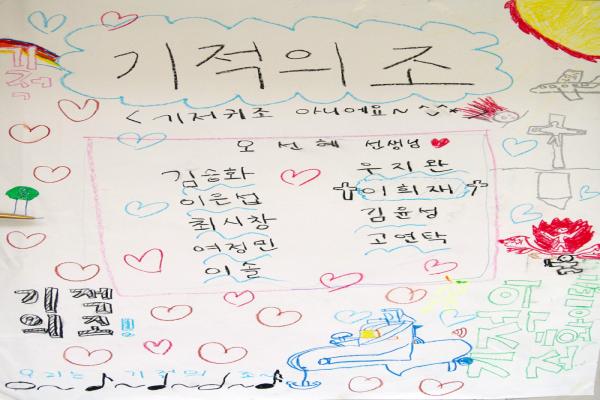 기적의 조
<기저귀조 아니에요~ ^^*>
오선혜 선생님
김승화
우지완
이은섭
이희재
최시창
김윤성
여정민
고연탁
이슬
기적
의조!
우리는 기적의 조~